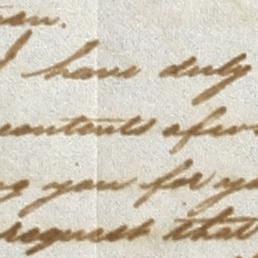 I have duly
contents of
you for
request that